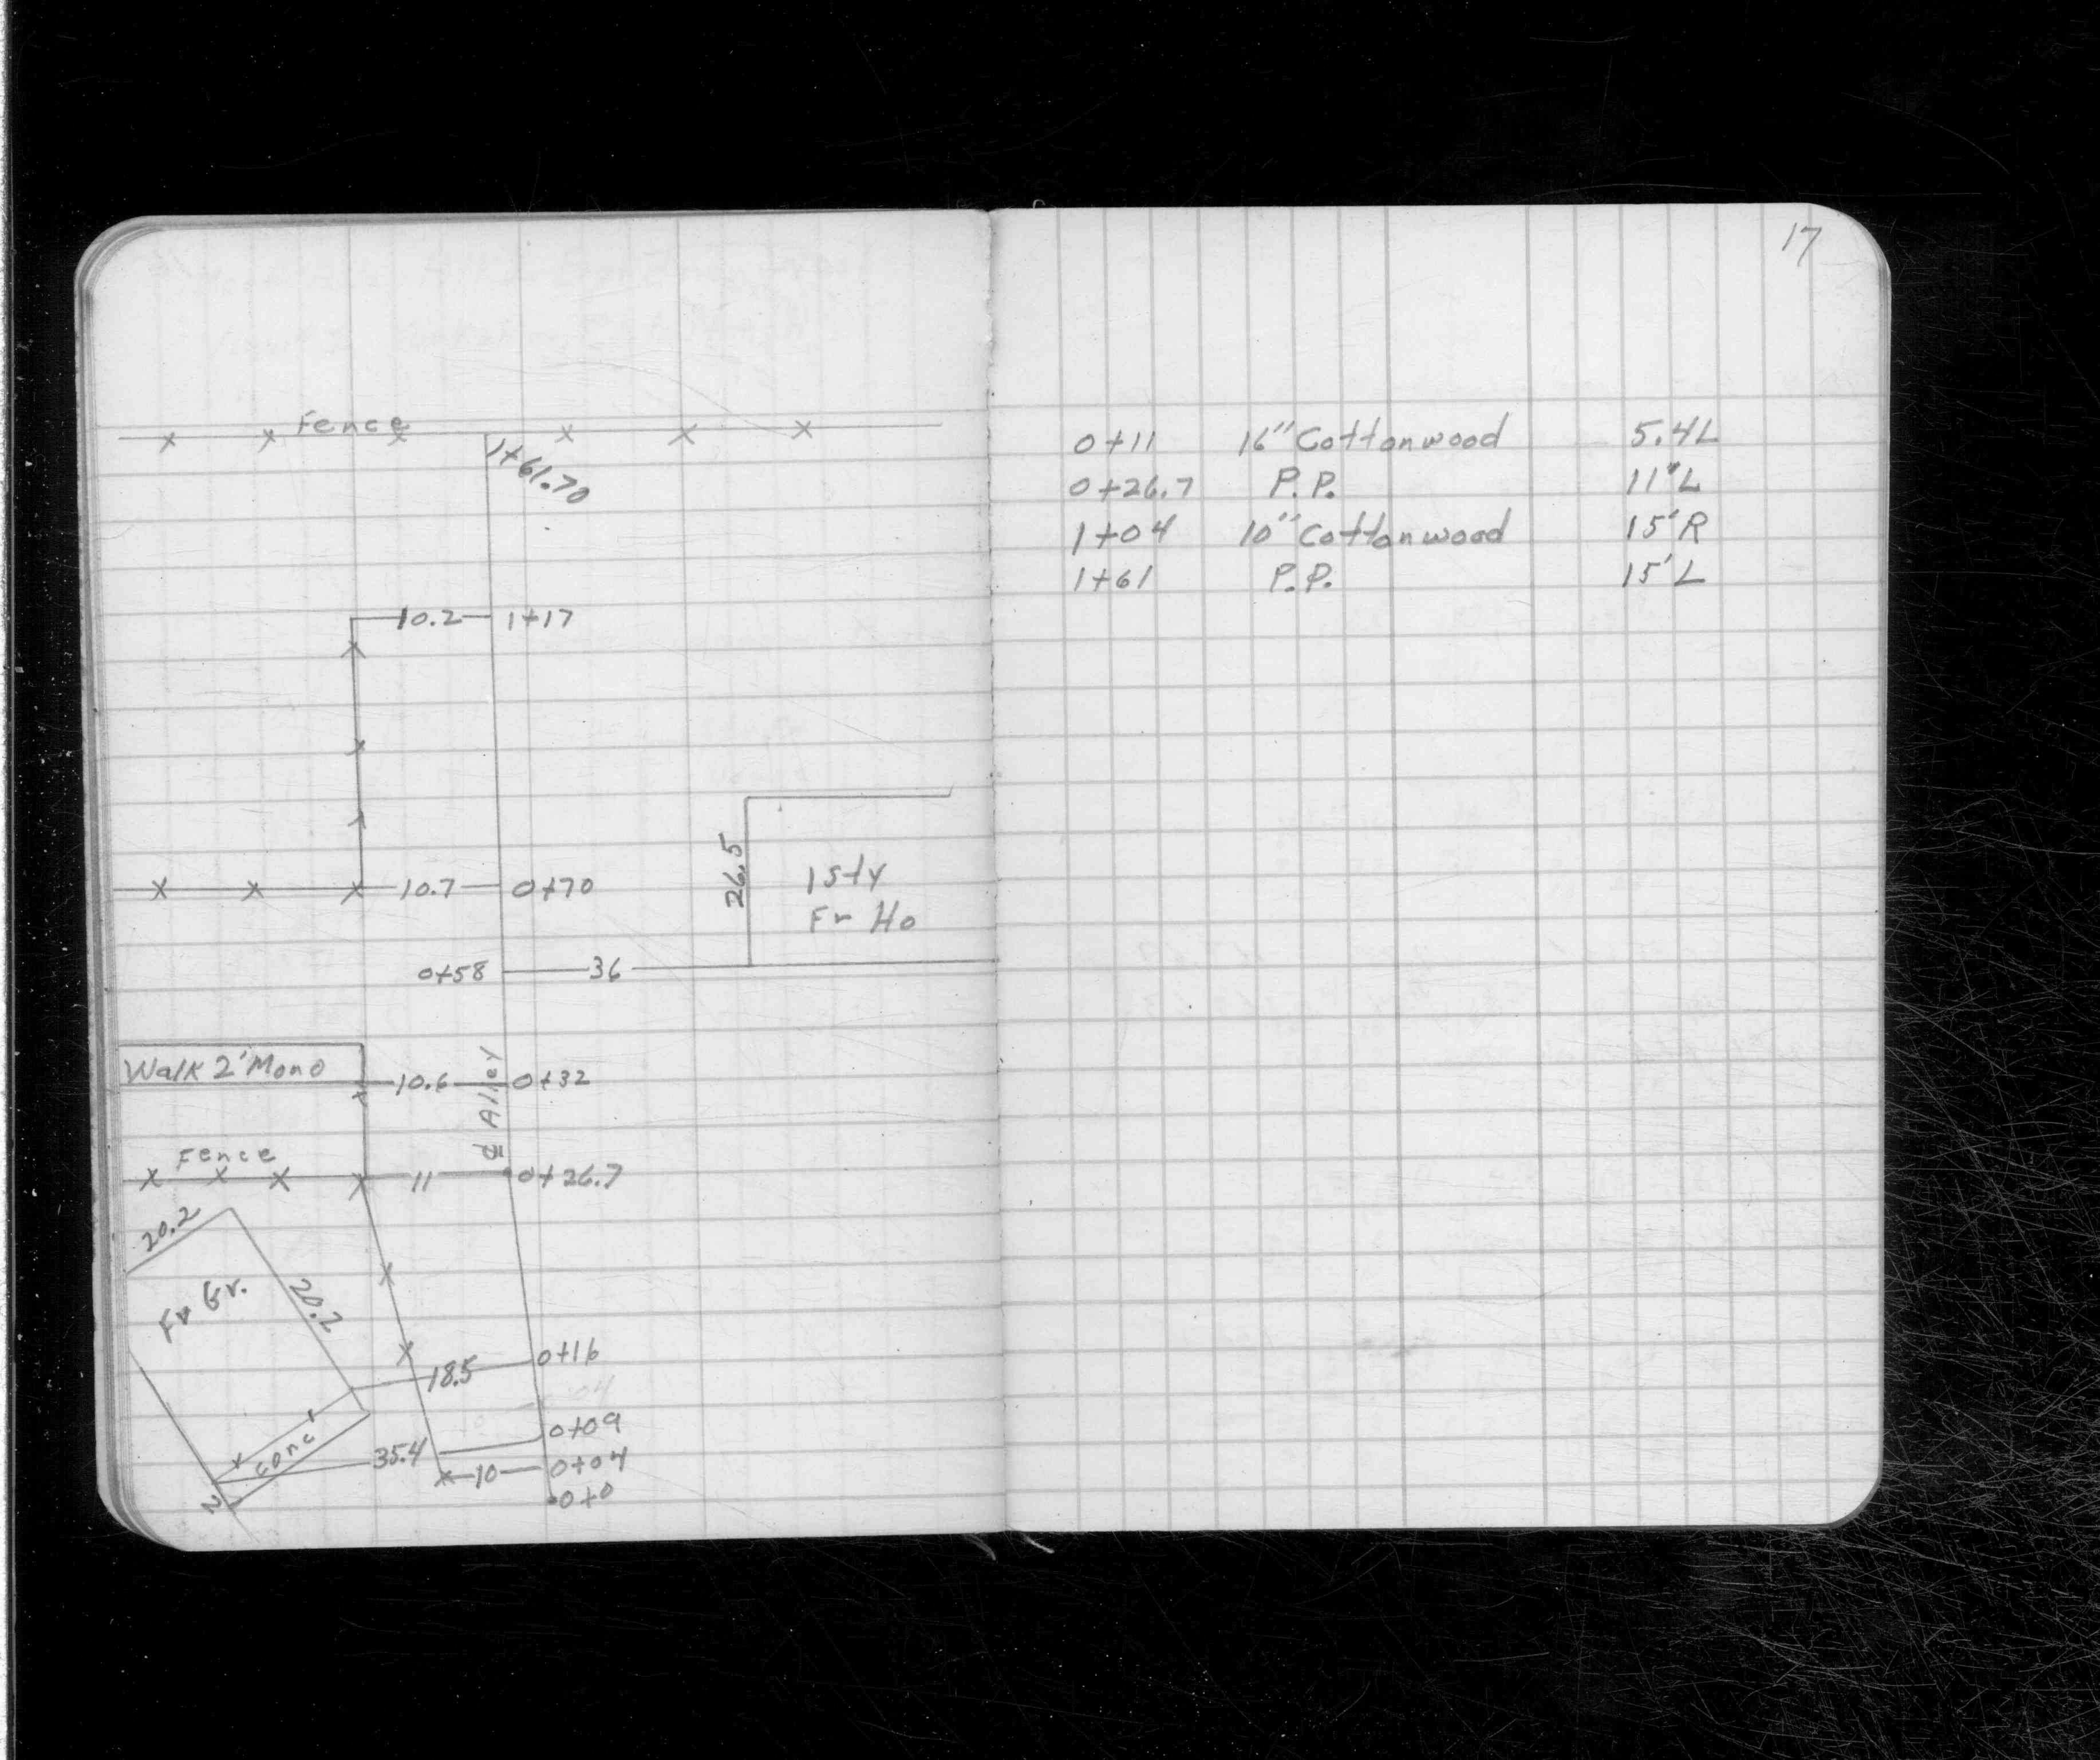 Fence
1+61.70
10.2 1+17
26.5
1 sty
Fr Ho
10.7 0+70
0+58 36
Walk 2' Mono
10.6 0+32
℄ Alley
Fence
11 0+26.7
20.2
Fr Gr.
20.2
18.5 0+16
0+09
conc
35.4
10 0+04
2
0+0
17
0+11 16" Cottonwood 5.4L
0+26.7 P.P. 11'L
1+04 10" Cottonwood 15'R
1+61 P.P. 15'L